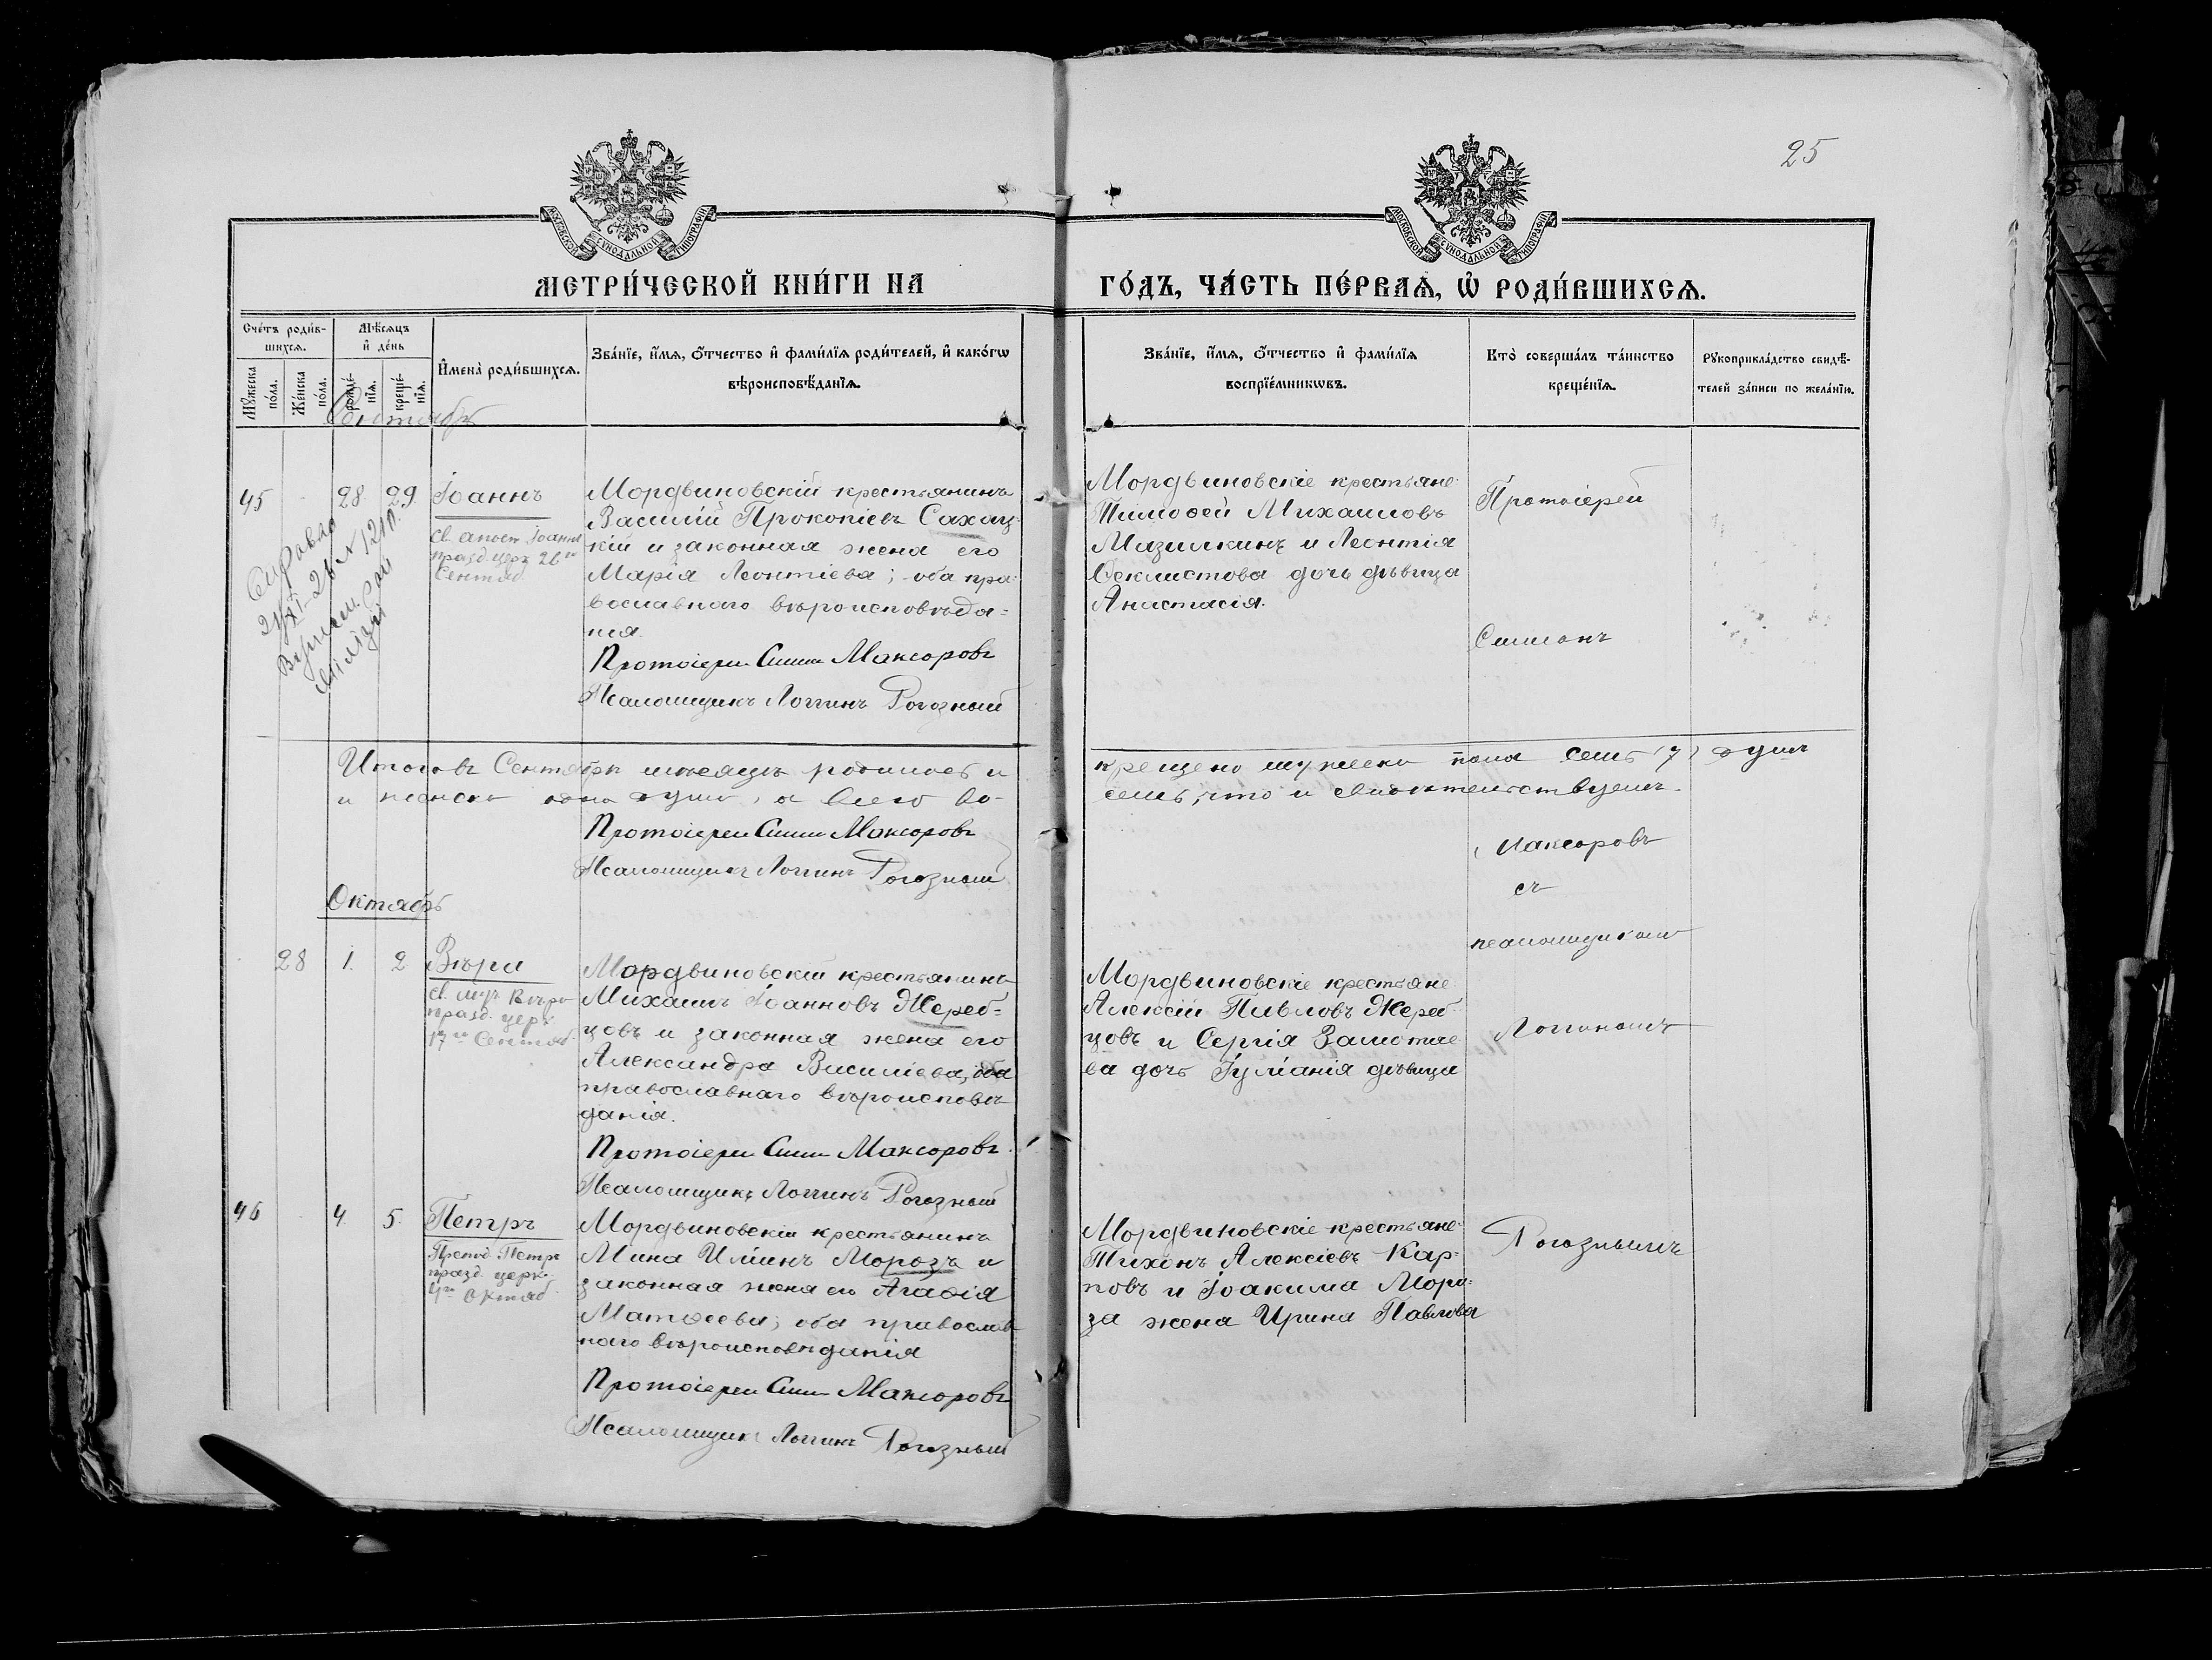 25
МОСКОВСКОЙ СѴНОДАЛЬНОЙ ТИПОГРАФІИ
МОСКОВСКОЙ СѴНОДАЛЬНОЙ ТИПОГРАФІИ
МЕТРИ́ЧЕСКОЙ КНИ́ГИ НА
ГО́ДЪ, ЧА́СТЬ ПЕ́РВАѦ, Ѡ҆ РОДИ́ВШИХСѦ.
Сче́тъ роди́в-
шихсѧ.
Мꙋ́жеска по́ла.
Же́нска по́ла.
Мѣ́сѧцъ
и҆ де́нь
рожде́-
нїѧ.
креще́-
нїѧ.
И҆мена̀ роди́вшихсѧ.
Зва́нїе, и҆́мѧ, ѻ҆́тчество и҆ фами́лїѧ роди́телей, и҆ како́гѡ
вѣроисповѣ́данїѧ.
Зва́нїе, и҆́мѧ, ѻ҆́тчество и҆ фами́лїѧ
воспрїе́мникѡвъ.
Кто̀ соверша́лъ та́инство
креще́нїѧ.
Рꙋкоприкла́дство свидѣ́-
телей за́писи по жела́нїю.
Сентябрь
45
28
29
Іоаннъ
Св. апост. Іоанна
празд. церк. 26го
Сентяб.
Мордвиновскій крестьянинъ
Василій Прокопіевъ Сахац-
кій и законная жена его
Марія Леонтіева; оба пра-
вославнаго вѣроисповѣда-
нія.
Протоіерей Симеонъ Максоровъ
Псаломщикъ Логгинъ Рогозный
Мордвиновскіе крестьяне:
Тимоѳей Михаиловъ
Мазилкинъ и Леонтія
Секлистова дочь дѣвица
Анастасія.
Протоіерей
Симеонъ
Итого въ Сентябрѣ мѣсяцѣ родилось и
крещено мужеска пола семь (7) душъ
и женска одна душа, а всего во-
семь, что и свидѣтельствуемъ.
Протоіерей Симеонъ Максоровъ
Псаломщикъ Логгинъ Рогозный
Максоровъ
съ
псаломщикомъ
Октябрь
28
1.
2
Вѣра
Св. муч. Вѣры
празд. церк.
17го Сентяб.
Мордвиновскій крестьянинъ
Михаилъ Іоанновъ Жереб-
цовъ и законная жена его
Александра Василіева, оба
православнаго вѣроисповѣ-
данія.
Протоіерей Симеонъ Максоровъ
Псаломщикъ Логгинъ Рогозный
Мордвиновскіе крестьяне:
Алексій Павловъ Жереб-
цовъ и Сергія Замотае
ва дочь Іуліанія дѣвица
Логгиномъ
46
4.
5.
Петръ
Препод. Петра
празд. церк.
4го Октяб.
Мордвиновскій крестьянинъ
Мина Илiинъ Морозъ и
законная жена его Агаѳія
Матѳеева; оба православ-
наго вѣроисповѣданія
Протоіерей Симеонъ Максоровъ
Псаломщикъ Логгинъ Рогозный
Мордвиновскіе крестьяне:
Тихонъ Алексіевъ Кар-
повъ и Іоакима Моро-
за жена Ирина Павлова
Рогознымъ